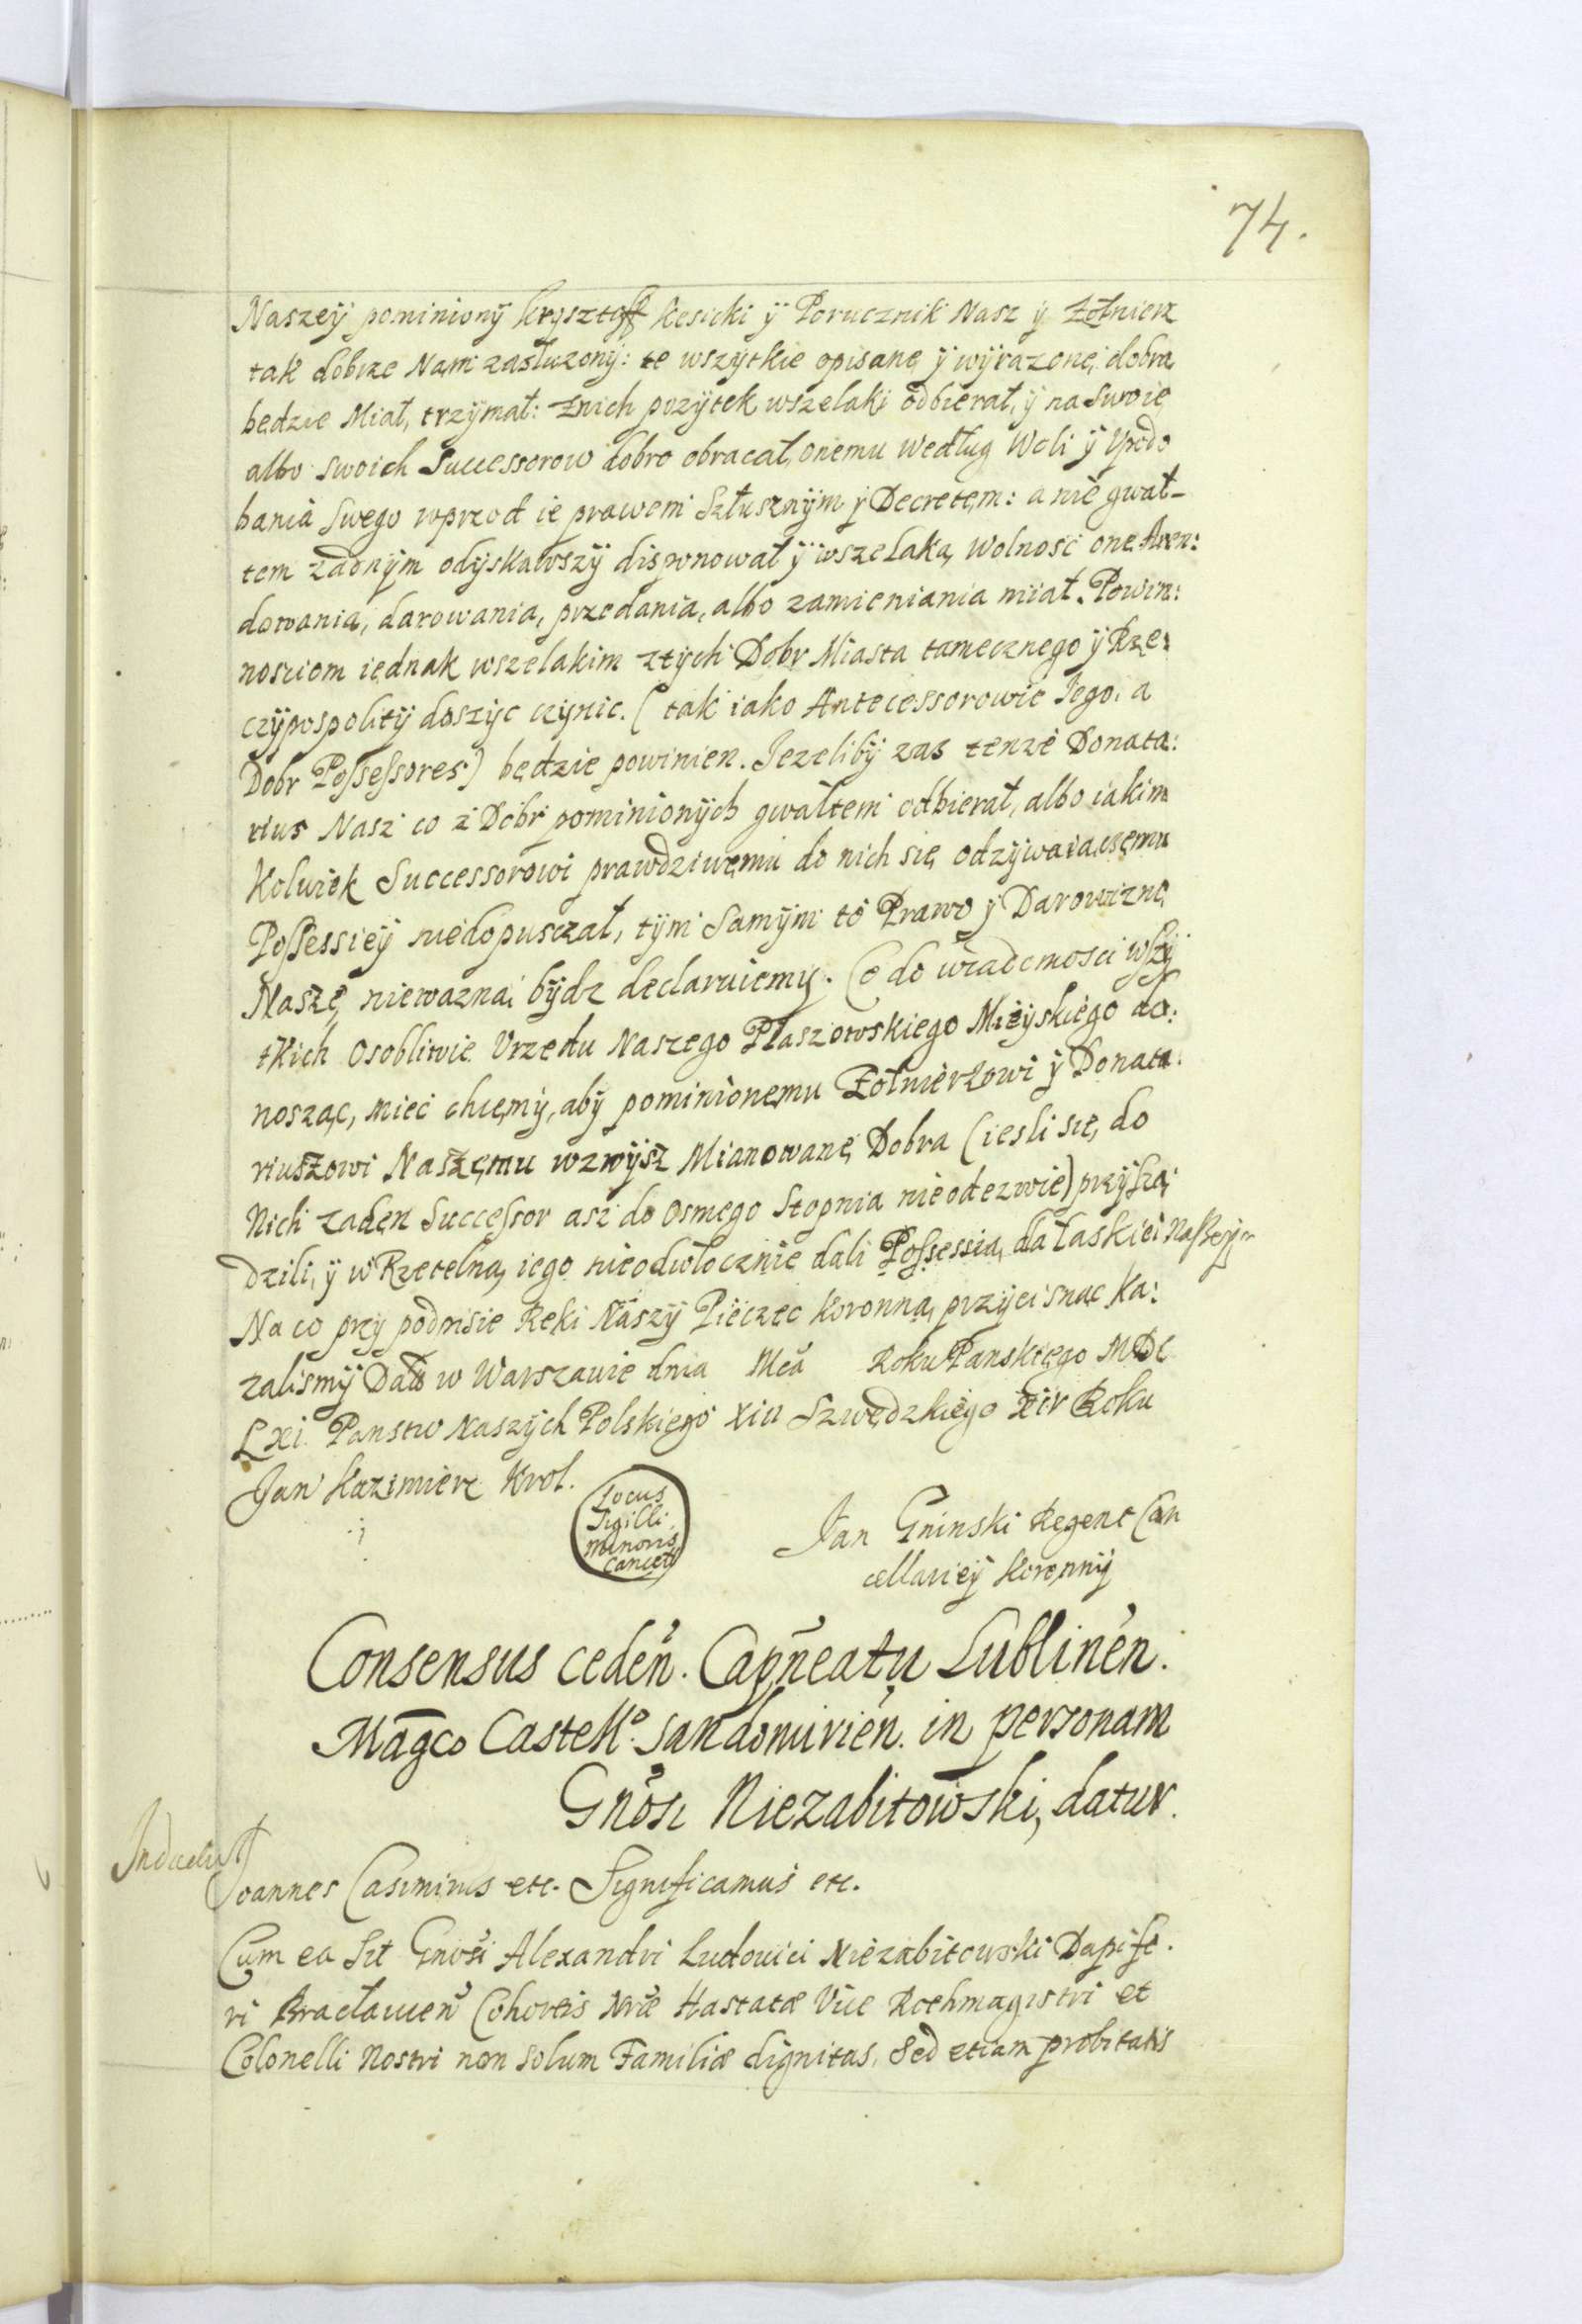 74.
Naszeÿ pominionÿ Krysztoff Kesicki ÿ Porucznik Nasz ÿ Żołnierz
tak dobrze Nam zasłuzonÿ: te wszÿtkie opisane ÿ wÿrazone dobra
będzie Miał, trzÿmał: znich pozÿtek wszelaki odbierał, ÿ na Swoie
albo swoich Successorow dobro obracał, onemu według Woli ÿ Vpodo
bania Swego wprzod ie prawem Słusznÿm ÿ Decretem: a nie gwał-
tem żadnÿm odÿskawszÿ disponował ÿ wszelaką wolnosc one Aren:
dowania, darowania, przedania, albo zamieniania miał. Powin:
nosciom iednak wszelakim ztÿch Dobr Miasta tamecznego ÿ Rze:
czÿpospolitÿ doszÿc czÿnic. (tak iako Antecessorowie Iego, a
Dobr Possessores) będzie powinien. Iezelibÿ zas tenże Donata:
rius Nasz co z Dobr pominionÿch gwałtem odbierał, albo iakim
Kolwiek Successorowi prawdziwemu do nich się odzÿwaiącemu
Possessieÿ niedopusczał, tÿm Samÿm to Prawo ÿ Darowiznę
Naszę niewazną bÿdz declaruiemÿ. Co do wiadomosci wszÿ
tkich Osobliwie Vrzędu Naszego Płaszowskiego Mieÿskiego do:
nosząc, miec chcemÿ, abÿ pominionemu Żołnierzowi ÿ Donata:
riuszowi Naszemu wzwÿsz Mianowane Dobra (iesli się do
Nich zaden Successor asz do Osmego Stopnia nie odezwie) przÿszą
dzili, ÿ w Rzetelną iego nieodwłocznie dali Possessią, dla łaski Naszeÿ
Na co przÿ podpisie Ręki Naszÿ Pieczęc Koronną przÿcisnąc Ka:
zalismÿ Dał w Warszawie dnia Mca Roku Panskiego MDC
LXi Panstw Naszÿch Polskiego Xiii Szwedzkiego Xiv Roku
Jan Kazimierz Krol.
Locus
Sigilli
Minoris
Cancell
Jan Gninski Regent Can
cellarieÿ Koronnÿ
Consensus ceden. Capneatu Lublinen.
Magco Castello. Sandomirien. in personam
Gnosi Niezabitowski, datur.
Joannes Casimirus etc. Significamus etc.
Cum ea Sit Gnosi Alexandri Ludovici Niezabitowski Dapife.
ri Bracłauien Cohortis Nrae Hastatae Vice Rothmagistri et
Colonelli Nostri non solum Familiae dignitas, Sed etiam probitatis